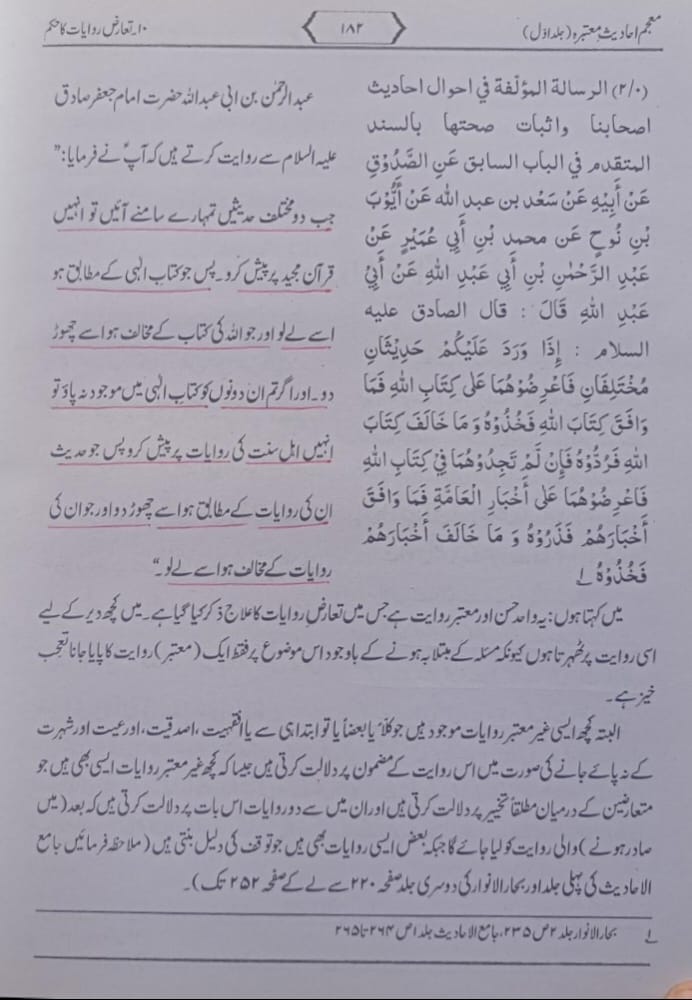 معجم احادیث معتبرہ (جلد اوّل)
۱۸۲
۱۰۔تعارض روایات کا حکم
(۲/۰) الرسالة المؤلّفة في احوال احاديث
اصحابنا واثبات صحتها بالسند
المتقدم في الباب السابق عَنِ الصَّدُوْقِ
عَنْ أَبِيْهِ عَنْ سَعْد بن عبد الله عَنْ أَيُّوْبَ
بْنِ نُوحٍ عَن محمد بْنِ أَبِي عُمَيْرٍ عَنْ
عَبْدِ الرَّحْمٰنِ بْنِ أَبِي عَبْدِ اللهِ عَنْ أَبِيْ
عَبْدِ اللهِ قَالَ : قال الصادق عليه
السلام : إِذَا وَرَدَ عَلَيْكُمْ حَدِيْثَانِ
مُخْتَلِفَانِ فَاعْرِضُوْهُمَا عَلٰى كِتَابِ اللهِ فَمَا
وَافَقَ كِتَابَ اللهِ فَخُذُوْهُ وَ مَا خَالَفَ كِتَابَ
اللهِ فَرُدُّوْهُ فَإِنْ لَّمْ تَجِدُوْهُمَا فِيْ كِتَابِ اللهِ
فَاعْرِضُوْهُمَا عَلٰى أَخْبَارِ الْعَامَّةِ فَمَا وَافَقَ
أَخْبَارَهُمْ فَذَرُوْهُ وَ مَا خَالَفَ أَخْبَارَهُمْ
فَخُذُوْهُ ۱
عبد الرحمٰن بن ابی عبد اللہ حضرت امام جعفر صادق
علیہ السلام سے روایت کرتے ہیں کہ آپؑ نے فرمایا: "
جب دو مختلف حدیثیں تمہارے سامنے آئیں تو انہیں
قرآن مجید پر پیش کرو۔ پس جو کتاب الٰہی کے مطابق ہو
اسے لے لو اور جو اللہ کی کتاب کے مخالف ہو اسے چھوڑ
دو۔ اور اگر تم ان دونوں کو کتاب الٰہی میں موجود نہ پاؤ تو
انہیں اہل سنت کی روایات پر پیش کرو پس جو حدیث
ان کی روایات کے مطابق ہو اسے چھوڑ دو اور جو ان کی
روایات کے مخالف ہو اسے لے لو۔"
میں کہتا ہوں: یہ واحد حسن اور معتبر روایت ہے جس میں تعارض روایات کا علاج ذکر کیا گیا ہے۔ میں کچھ دیر کے لیے
اسی روایت پر ٹھہرتا ہوں کیونکہ مسئلہ کے مبتلا بہ ہونے کے باوجود اس موضوع پر فقط ایک (معتبر) روایت کا پایا جانا تعجب
خیز ہے۔
البتہ کچھ ایسی غیر معتبر روایات موجود ہیں جو کلاً یا بعضاً یا تو ابتدا ہی سے یا افقہیت، اصدقیت، اورعیت اور شہرت
کے نہ پائے جانے کی صورت میں اس روایت کے مضمون پر دلالت کرتی ہیں جیسا کہ کچھ غیر معتبر روایات ایسی بھی ہیں جو
متعارضین کے درمیان مطلقاً تخییر پر دلالت کرتی ہیں اور ان میں سے دو روایات اس بات پر دلالت کرتی ہیں کہ بعد (میں
صادر ہونے) والی روایت کو لیا جائے گا جبکہ بعض ایسی روایات بھی ہیں جو توقف کی دلیل بنتی ہیں (ملاحظہ فرمائیں جامع
الاحادیث کی پہلی جلد اور بحار الانوار کی دوسری جلد صفحہ ۲۲۰ سے لے کے صفحہ ۲۵۲ تک)۔
۱ بحار الانوار جلد ۲ ص ۲۳۵، جامع الاحادیث جلد ۱ ص ۲۶۴ تا ۲۶۵